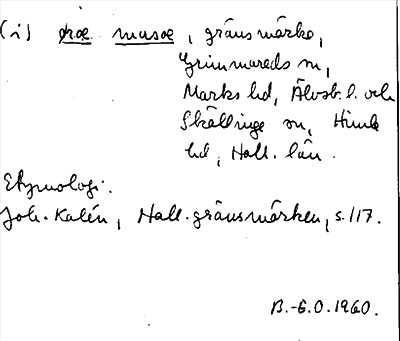 (i) præ musæ, gränsmärke,
Grimmareds sn,
Marks hd, Älvsb. l. och
Skällinge sn, Himle
hd, Hall. län.
Etymologi.
Joh. Kalén, Hall. gränsmärken, s. 117.
B.-E.O. 1960.